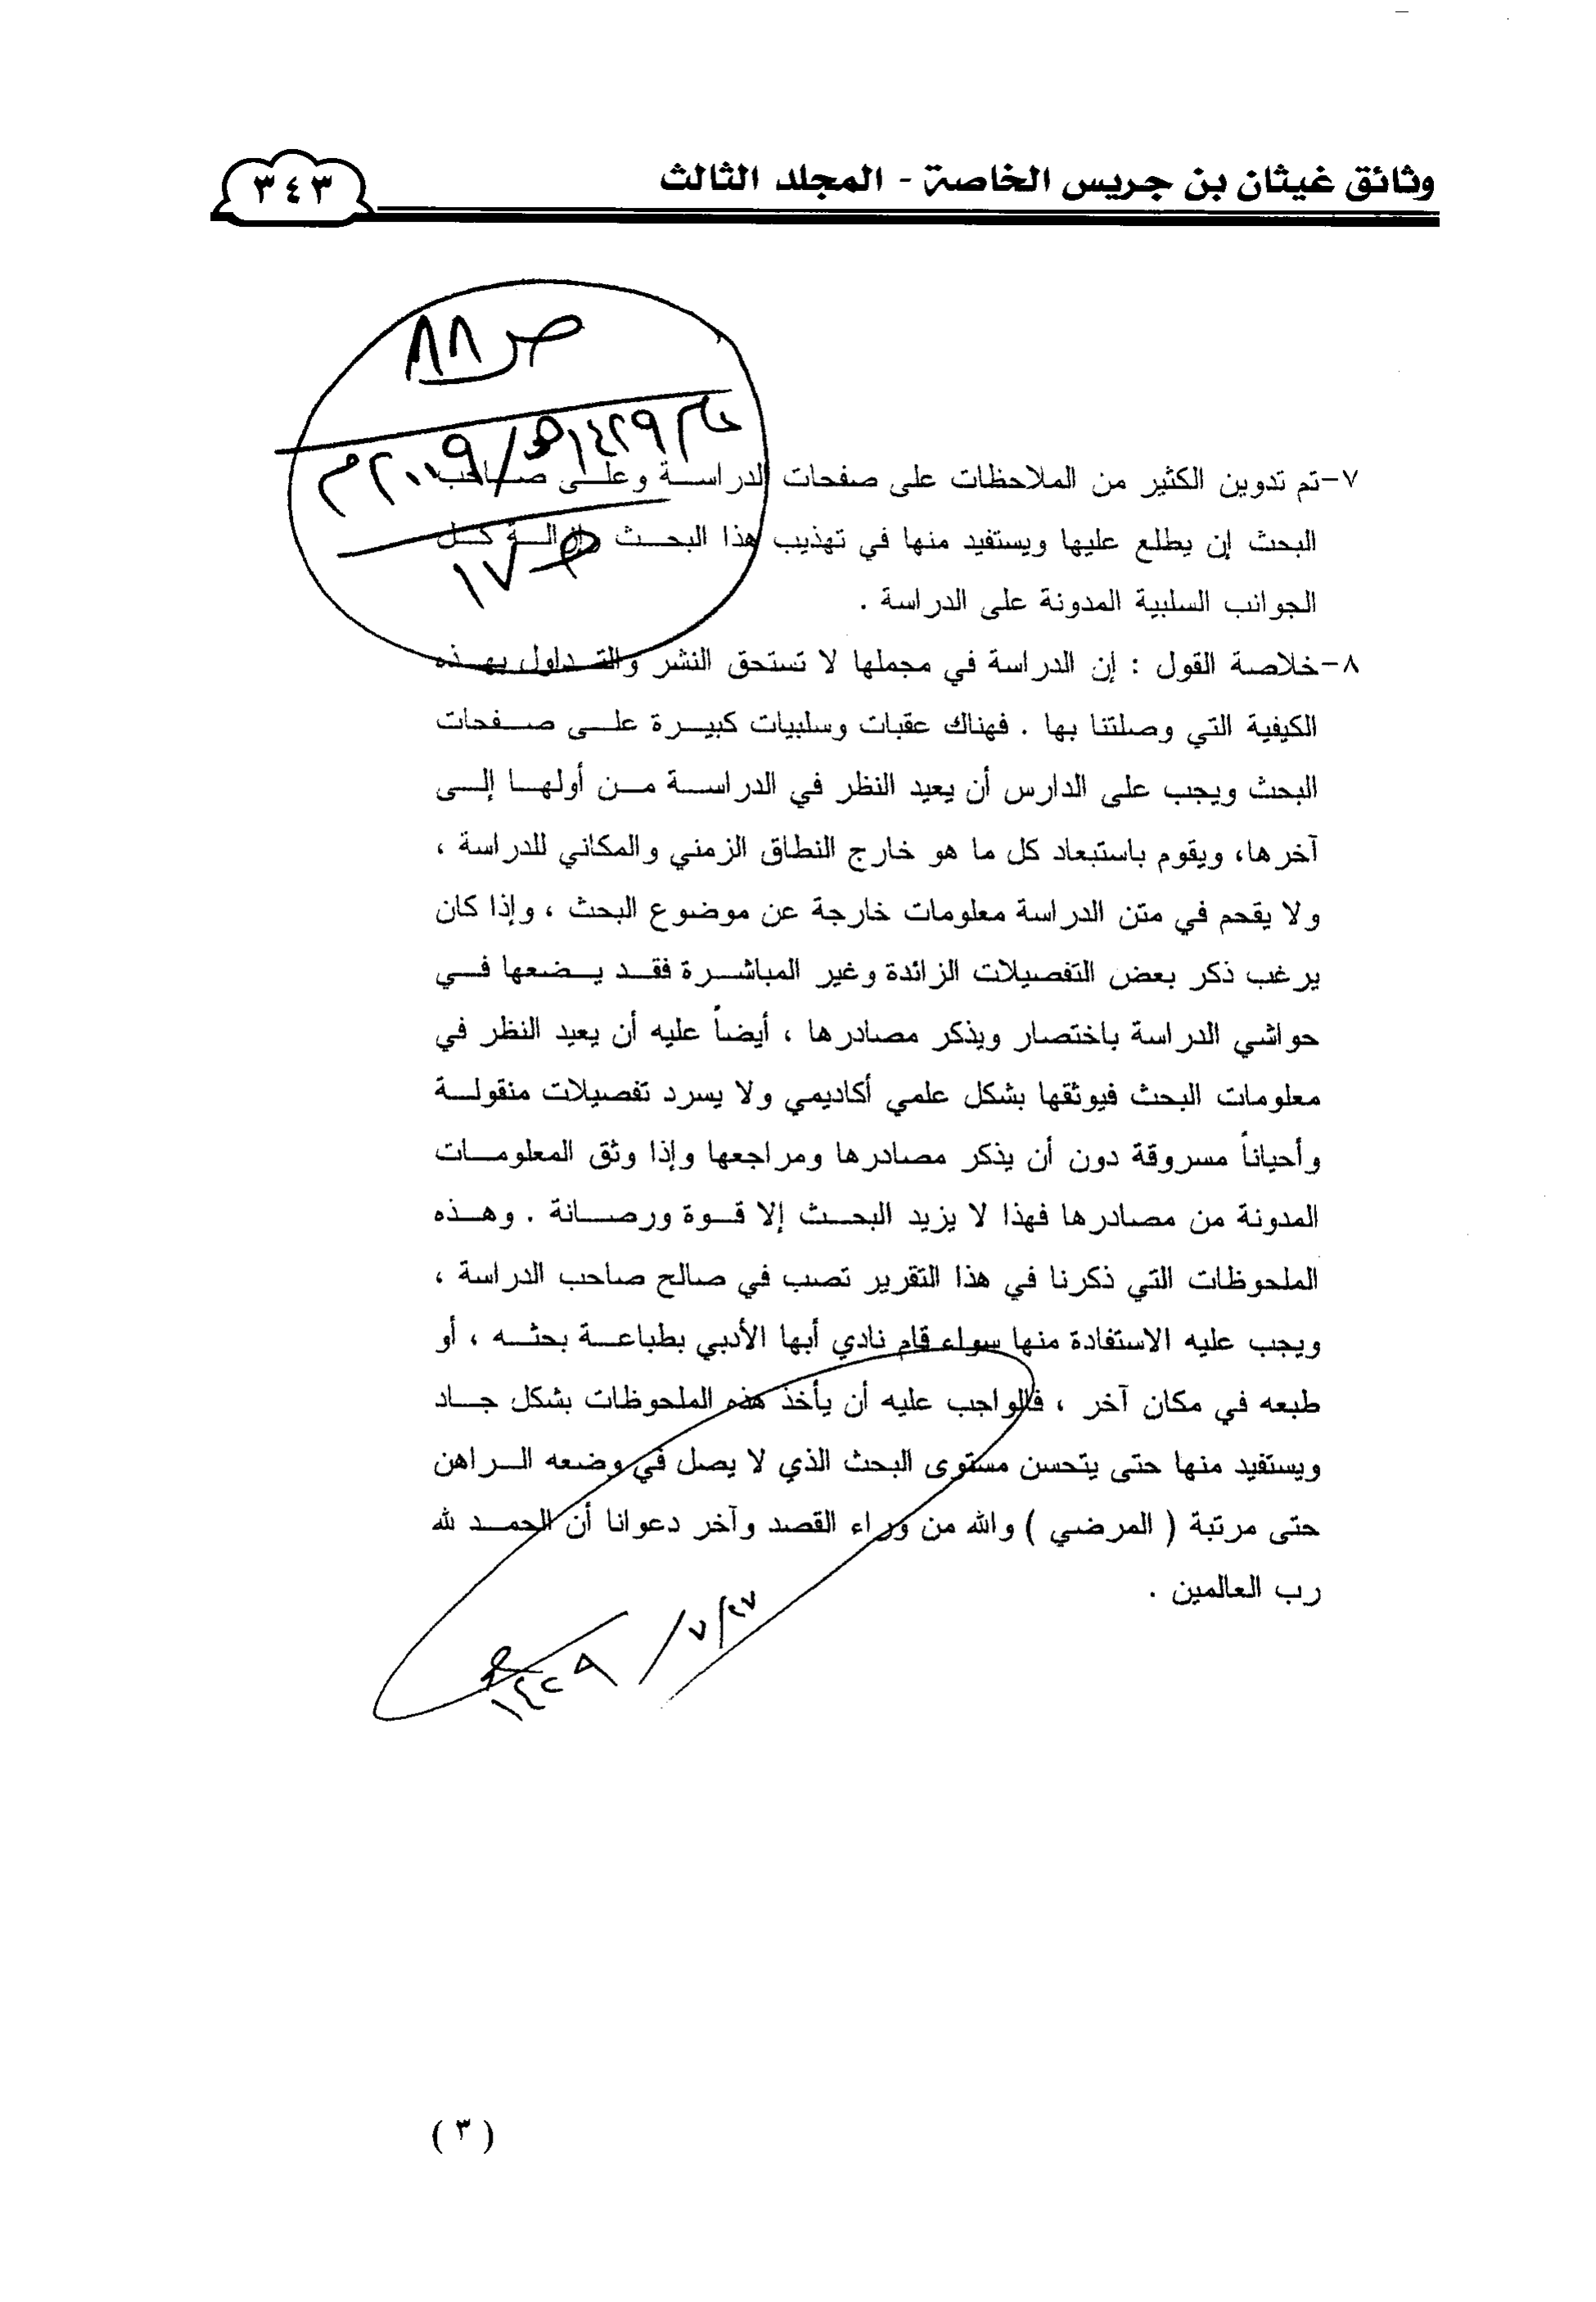 وثائق غيثان بن جريس الخاصة - المجلد الثالث
٣٤٣
ص ٨٨
عام ١٤٢٩هـ / ٢٠٠٩م
ص ١٧
٧-تم تدوين الكثير من الملاحظات على صفحات الدراسة وعلى صاحب
البحث إن يطلع عليها ويستفيد منها في تهذيب هذا البحث وإزالة كل
الجوانب السلبية المدونة على الدراسة .
٨-خلاصة القول : إن الدراسة في مجملها لا تستحق النشر والتداول بهذه
الكيفية التي وصلتنا بها . فهناك عقبات وسلبيات كبيرة على صفحات
البحث ويجب على الدارس أن يعيد النظر في الدراسة من أولها إلى
آخرها، ويقوم باستبعاد كل ما هو خارج النطاق الزمني والمكاني للدراسة ،
ولا يقحم في متن الدراسة معلومات خارجة عن موضوع البحث ، وإذا كان
يرغب ذكر بعض التفصيلات الزائدة وغير المباشرة فقد يضعها في
حواشي الدراسة باختصار ويذكر مصادرها ، أيضاً عليه أن يعيد النظر في
معلومات البحث فيوثقها بشكل علمي أكاديمي ولا يسرد تفصيلات منقولة
وأحياناً مسروقة دون أن يذكر مصادرها ومراجعها وإذا وثق المعلومات
المدونة من مصادرها فهذا لا يزيد البحث إلا قوة ورصانة . وهذه
الملحوظات التي ذكرنا في هذا التقرير تصب في صالح صاحب الدراسة ،
ويجب عليه الاستفادة منها سواء قام نادي أبها الأدبي بطباعة بحثه ، أو
طبعه في مكان آخر ، فالواجب عليه أن يأخذ هذه الملحوظات بشكل جاد
ويستفيد منها حتى يتحسن مستوى البحث الذي لا يصل في وضعه الراهن
حتى مرتبة ( المرضي ) والله من وراء القصد وآخر دعوانا أن الحمد لله
رب العالمين .
٢٧/٧/١٤٢٩هـ
( ٣ )